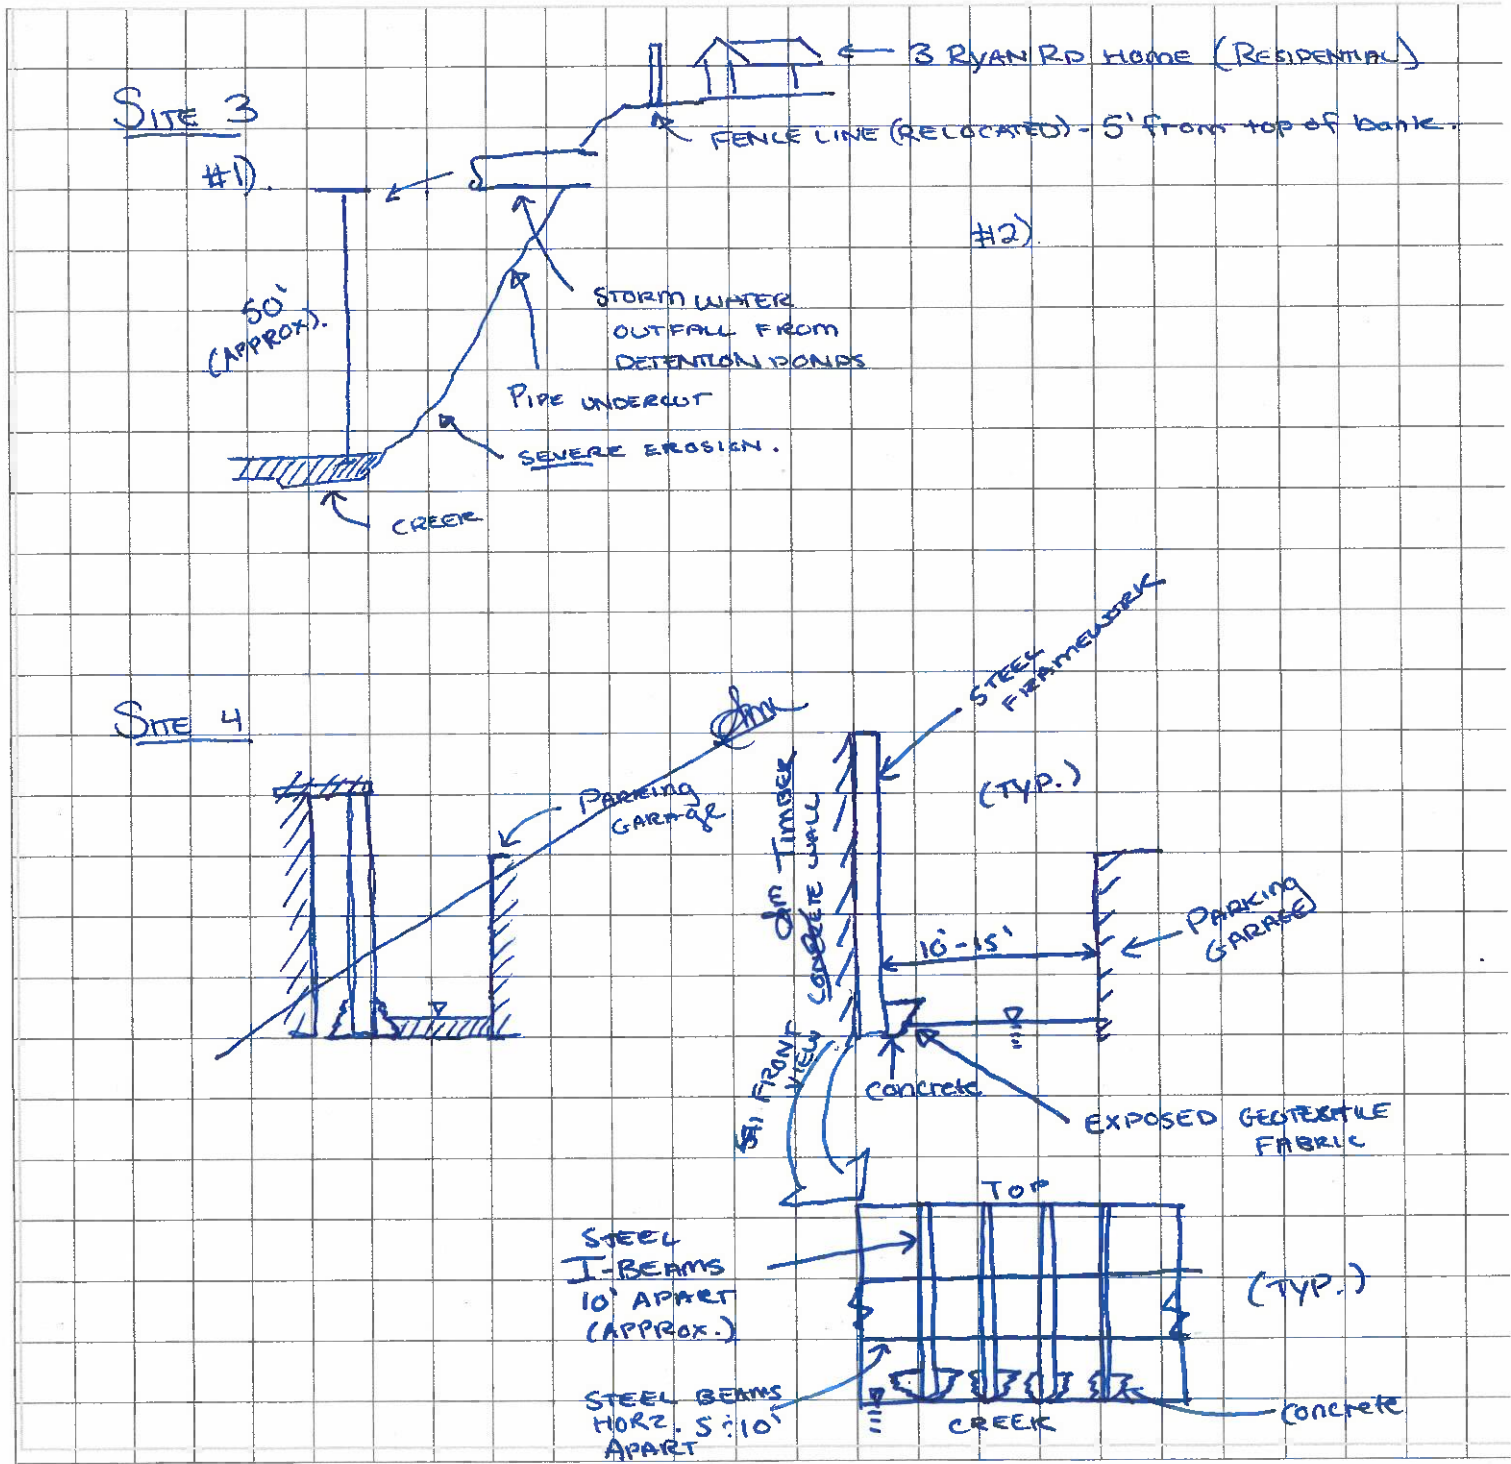 3 RYAN RD HOME (RESIDENTIAL)
SITE 3
FENCE LINE (RELOCATED) - 5' from top of bank.
#1).
#2).
50'
(APPROX).
STORM WATER
OUTFALL FROM
DETENTION PONDS
PIPE UNDERCUT
SEVERE EROSION.
CREEK
SITE 4
STEEL
FRAMEWORK
PARKING
GARAGE
TIMBER
CONCRETE WALL
(TYP.)
10'-15'
PARKING
GARAGE
FRONT
VIEW
concrete
EXPOSED GEOTEXTILE
FABRIC
TOP
STEEL
I-BEAMS
10' APART
(APPROX.)
(TYP.)
STEEL BEAMS
HORZ. 5-10'
APART
CREEK
concrete